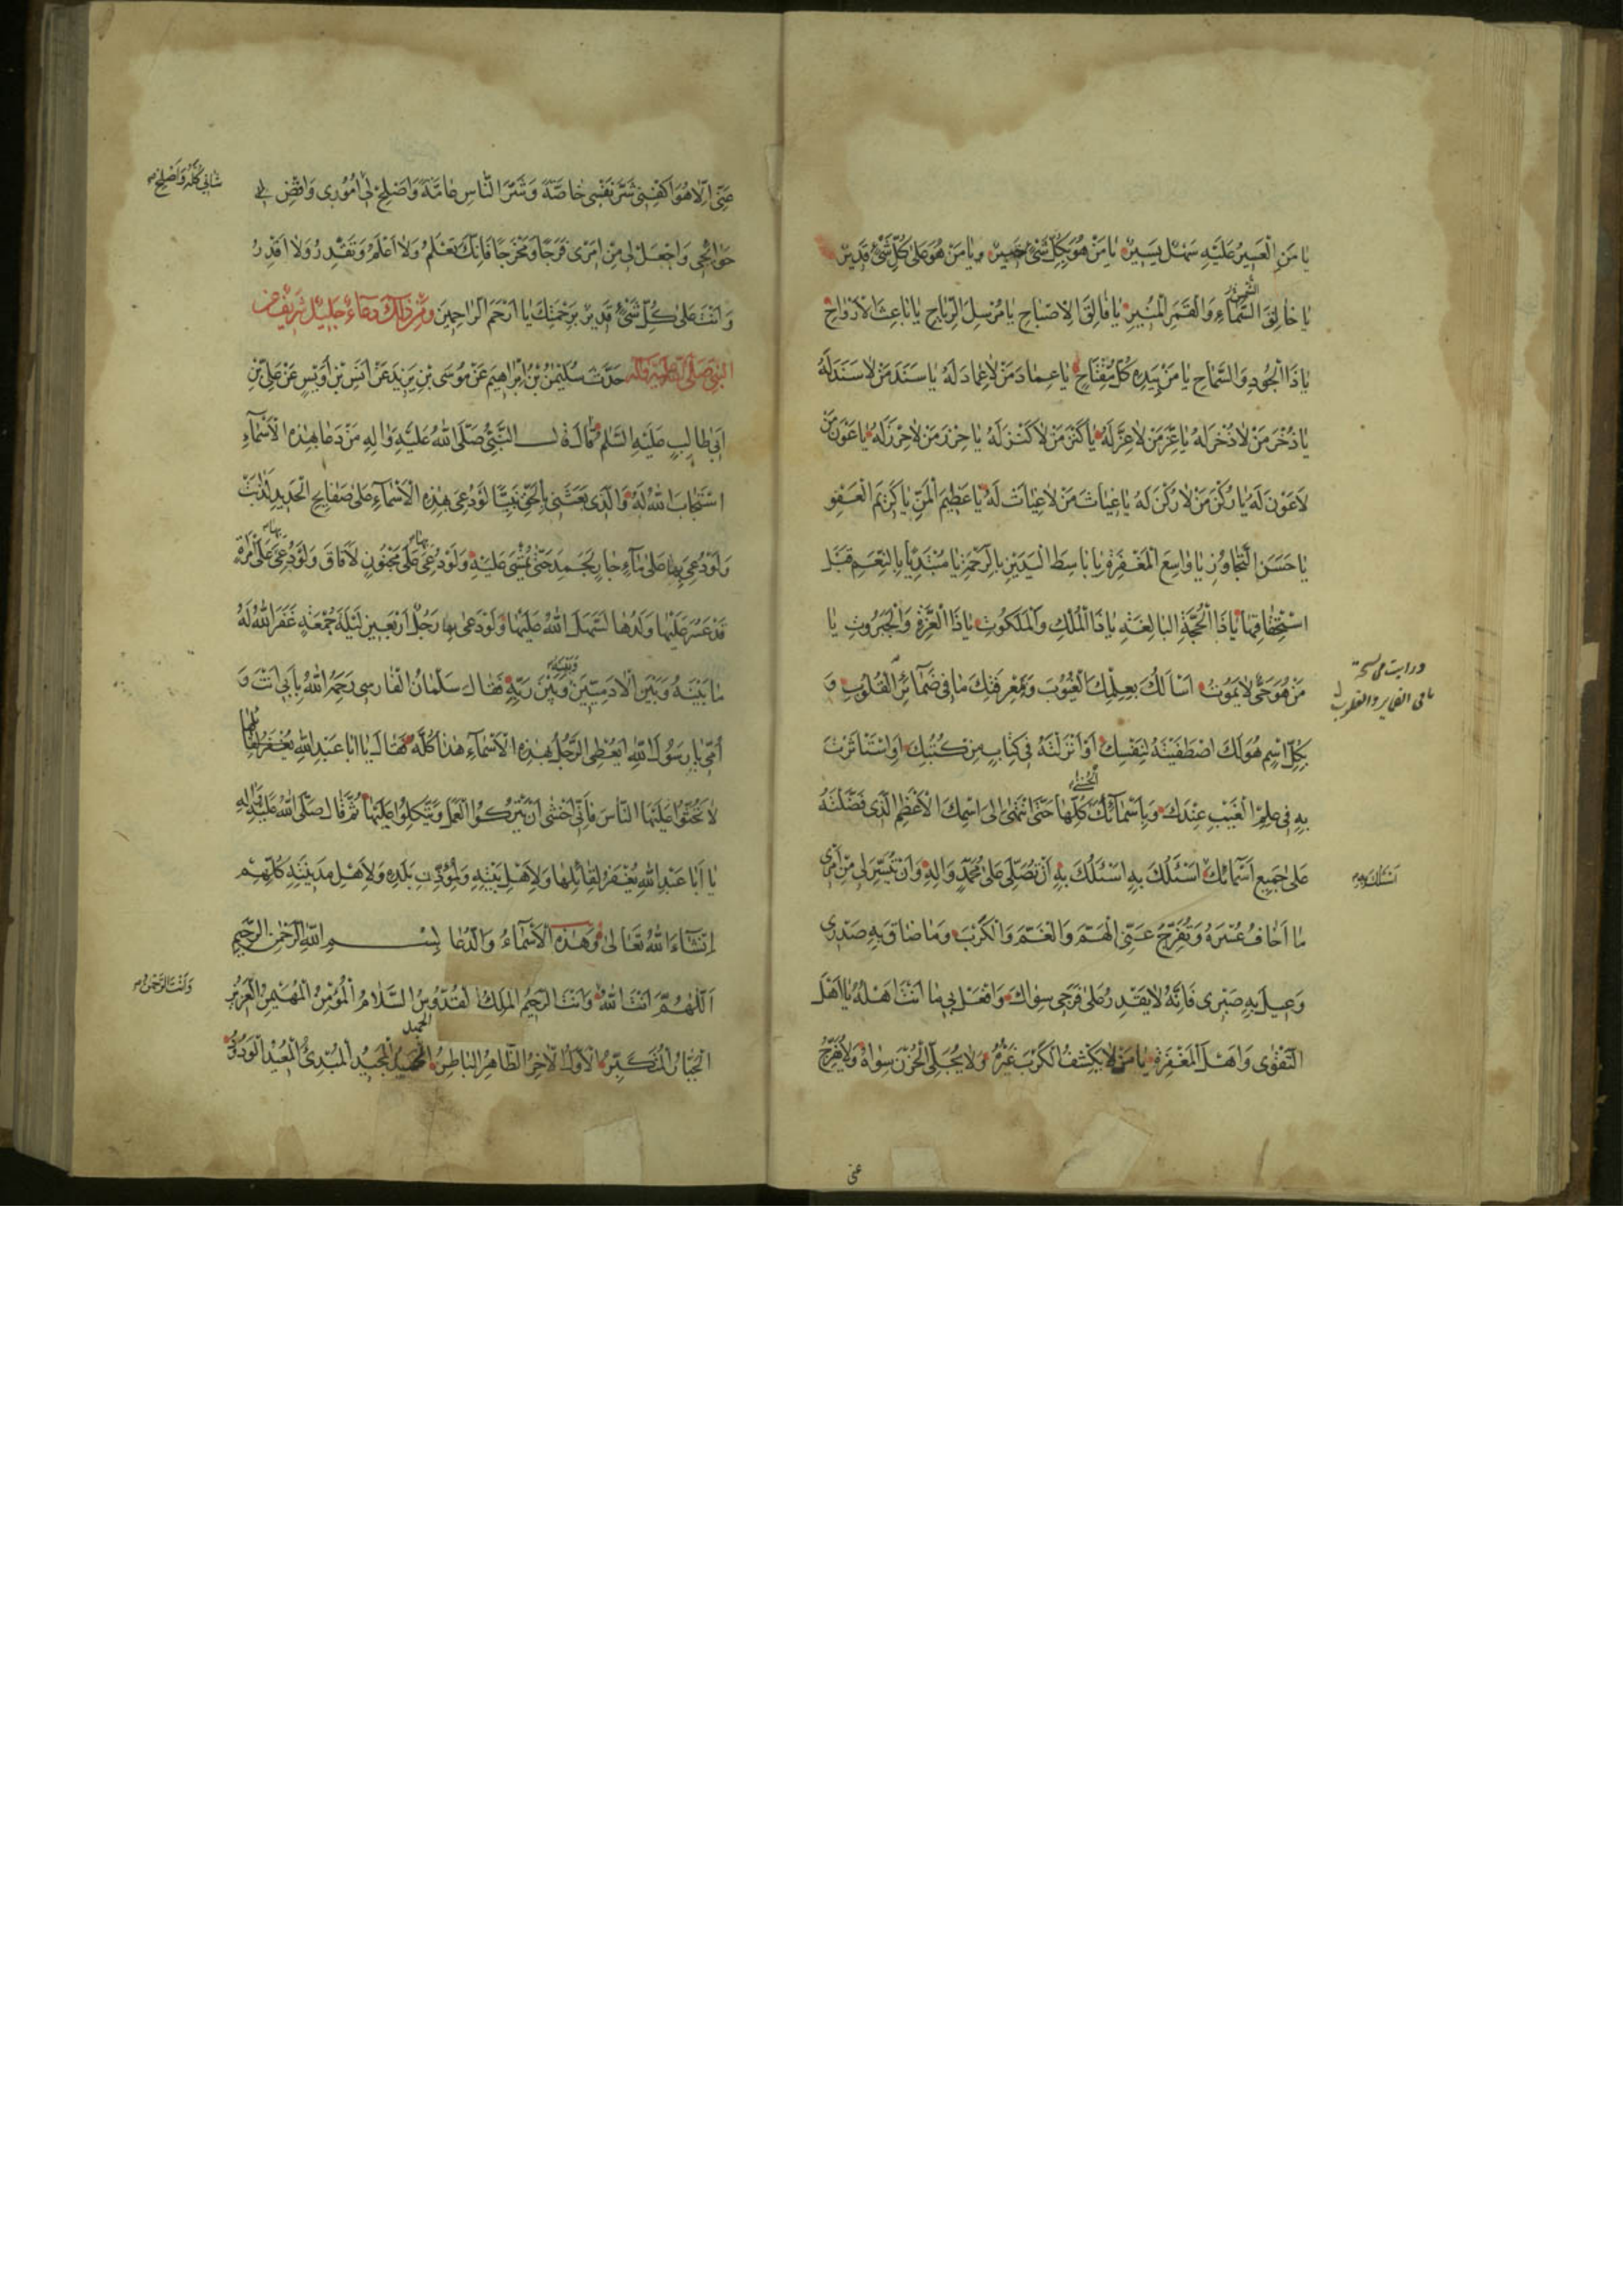 يا مَنِ الْعَسِيرُ عَلَيْهِ سَهْلٌ يَسِيرٌ يا مَنْ هُوَ بِكُلِّ شَىْءٍ خَبِيرٌ ويا مَنْ هُوَ عَلى كُلِّ شَىْءٍ قَدِيرٌ
يا خالِقَ السَّمآءِ وَالْقَمَرِ الْمُنِيرِ يا فالِقَ الْاِصْباحِ يا مُرْسِلَ الرِّياحِ يا باعِثَ الْاَرْواحِ
يا ذَا الْجُودِ وَالسَّماحِ يا مَنْ بِيَدِهِ كُلُّ مِفْتاحٍ يا عِمادَ مَنْ لا عِمادَ لَهُ يا سَنَدَ مَنْ لا سَنَدَ لَهُ
يا ذُخْرَ مَنْ لا ذُخْرَ لَهُ يا عِزَّ مَنْ لا عِزَّ لَهُ يا كَنْزَ مَنْ لا كَنْزَ لَهُ يا حِرْزَ مَنْ لا حِرْزَ لَهُ يا عَوْنَ مَنْ
لا عَوْنَ لَهُ يا رُكْنَ مَنْ لا رُكْنَ لَهُ يا غِياثَ مَنْ لا غِياثَ لَهُ يا عَظِيمَ الْمَنِّ يا كَرِيمَ الْعَفْوِ
يا حَسَنَ التَّجاوُزِ يا واسِعَ الْمَغْفِرَةِ يا باسِطَ الْيَدَيْنِ بِالرَّحْمَةِ يا مُبْتَدِيًا بِالنِّعَمِ قَبْلَ
اسْتِحْقاقِها يا ذَا الْحُجَّةِ الْبالِغَةِ يا ذَا الْمُلْكِ وَالْمَلَكُوتِ يا ذَا الْعِزَّةِ وَالْجَبَرُوتِ يا
مَنْ هُوَ حَىٌّ لا يَمُوتُ اَسْاَلُكَ بِعِلْمِكَ الْغُيُوبَ وَبِمَعْرِفَتِكَ ما فِى ضَمآئِرِ الْقُلُوبِ وَ
بِكُلِّ اسْمٍ هُوَ لَكَ اصْطَفَيْتَهُ لِنَفْسِكَ اَوْ اَنْزَلْتَهُ فِى كِتابٍ مِنْ كُتُبِكَ اَوِ اسْتَأْثَرْتَ
بِهِ فِى عِلْمِ الْغَيْبِ عِنْدَكَ وَبِاَسْمآئِكَ الْحُسْنى كُلِّها حَتّى انْتَهى اِلَى اسْمِكَ الْاَعْظَمِ الَّذِى فَضَّلْتَهُ
عَلى جَمِيعِ اَسْمآئِكَ اَسْئَلُكَ بِهِ اَسْئَلُكَ بِهِ اَنْ تُصَلِّىَ عَلى مُحَمَّدٍ وَالِهِ وَاَنْ تُيَسِّرَ لِى مِنْ اَمْرِى
ما اَخافُ عُسْرَهُ وَتُفَرِّجَ عَنِّى الْهَمَّ وَالْغَمَّ وَالْكَرْبَ وَما ضاقَ بِهِ صَدْرِى
وَعِيلَ بِهِ صَبْرِى فَاِنَّهُ لا يَقْدِرُ عَلى فَرَجِى سِواكَ وَافْعَلْ بِى ما اَنْتَ اَهْلُهُ يا اَهْلَ
التَّقْوى وَاَهْلَ الْمَغْفِرَةِ يا مَنْ لا يَكْشِفُ الْكَرْبَ غَيْرُهُ وَلا يُجَلِّى الْحُزْنَ سِواهُ وَلا يُفَرِّجُ
عنى
الشمس و
ما فى الضماير و القلوب
عَنِّى اِلّا هُوَ اكْفِنِى شَرَّ نَفْسِى خاصَّةً وَشَرَّ النّاسِ عامَّةً وَاَصْلِحْ لِى اُمُورِى وَاقْضِ لِى
حَوائِجِى وَاجْعَلْ لِى مِنْ اَمْرِى فَرَجًا وَمَخْرَجًا فَاِنَّكَ تَعْلَمُ وَلا اَعْلَمُ وَتَقْدِرُ وَلا اَقْدِرُ
وَاَنْتَ عَلى كُلِّ شَىْءٍ قَدِيرٌ بِرَحْمَتِكَ يا اَرْحَمَ الرّاحِمِينَ وَمِنْ ذلِكَ دعاءٌ جَلِيلٌ شَرِيفٌ عن
النبى صَلَّى اللّهُ عَلَيْهِ وَآلِهِ حَدَّثَ سُلَيْمنُ بْنُ اِبْراهِيمَ عَنْ مُوسَى بْنِ يَزِيدَ عَنْ اَنَسِ بْنِ اُوَيْسٍ عَنْ عَلِىِّ بْنِ
اَبِى طالِبٍ عَلَيْهِ السَّلمُ قالَ قالَ النَّبِىُّ صَلَّى اللّهُ عَلَيْهِ وَالِهِ مَنْ دَعا بِهذِهِ الْاَسْمآءِ
اسْتَجابَ اللّهُ لَهُ وَالَّذِى بَعَثَنِى بِالْحَقِّ نَبِيًّا لَوْ دُعِىَ بِهذِهِ الْاَسْمآءِ عَلى صَفايِحِ الْحَدِيدِ لَذابَتْ
وَلَوْ دُعِىَ بِها عَلى مآءٍ جارٍ لَجَمَدَ حَتّى يُمْشى عَلَيْهِ وَلَوْ دُعِىَ بِها عَلى مَجْنُونٍ لَاَفاقَ وَلَوْ دُعِىَ بِها عَلَى امْرَاَةٍ
قَدْ عَسُرَ عَلَيْها وَلَدُها لَسَهَّلَ اللّهُ عَلَيْها وَلَوْ دَعى بِها رَجُلٌ اَرْبَعِينَ لَيْلَةَ جُمْعَةٍ غَفَرَ اللّهُ لَهُ
ما بَيْنَهُ وَبَيْنَ الْادَمِيِّينَ وَبَيْنَ رَبِّهِ فَقالَ سَلْمانُ الْفارِسِى رَحِمَهُ اللّهُ بِاَبِى اَنْتَ وَ
اُمِّى يا رَسُولَ اللّهِ اَيُعْطَى الرَّجُلُ بِهذِهِ الْاَسْمآءِ هذا كُلَّهُ فَقالَ يا اَبا عَبْدِ اللّهِ يُغْفَرُ
لا تَحُثُّوا عَلَيْهَا النّاسَ فَاِنِّى اَخْشى اَنْ يَتْرُكُوا الْعَمَلَ وَيَتَّكِلُوا عَلَيْها ثُمَّ قالَ صَلَّى اللّهُ عَلَيْهِ وَالِهِ
يا اَبا عَبْدِ اللّهِ يُغْفَرُ لِقائِلِها وَلِاَهْلِ بَيْتِهِ وَلِمُؤَدِّبِ بَلَدِهِ وَلِاَهْلِ مَدِينَتِهِ كُلِّهِمْ
اِنْشآءَ اللّهُ تَعالى وَهذِهِ الْاَسْمآءُ وَالدُّعا بِسْمِ اللّهِ الرَّحْمنِ الرَّحِيمِ
اَللّهُمَّ اَنْتَ اللّهُ وَاَنْتَ الرَّحِيمُ الْمَلِكُ الْقُدُّوسُ السَّلامُ الْمُؤْمِنُ الْمُهَيْمِنُ الْعَزِيزُ
الْجَبّارُ الْمُتَكَبِّرُ الْاَوَّلُ الْاخِرُ الظّاهِرُ الْباطِنُ الْحَمِيدُ الْمَجِيدُ الْمُبْدِئُ الْمُعِيدُ الْوَدُودُ
شَأْنِى كُلَّهُ وَاَصْلِحْ
وَاَنْتَ الرَّحْمنُ